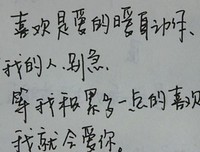 喜欢是爱的暖身动作、
我的人.别急.
等我积累多一点的喜欢
我就会爱你。